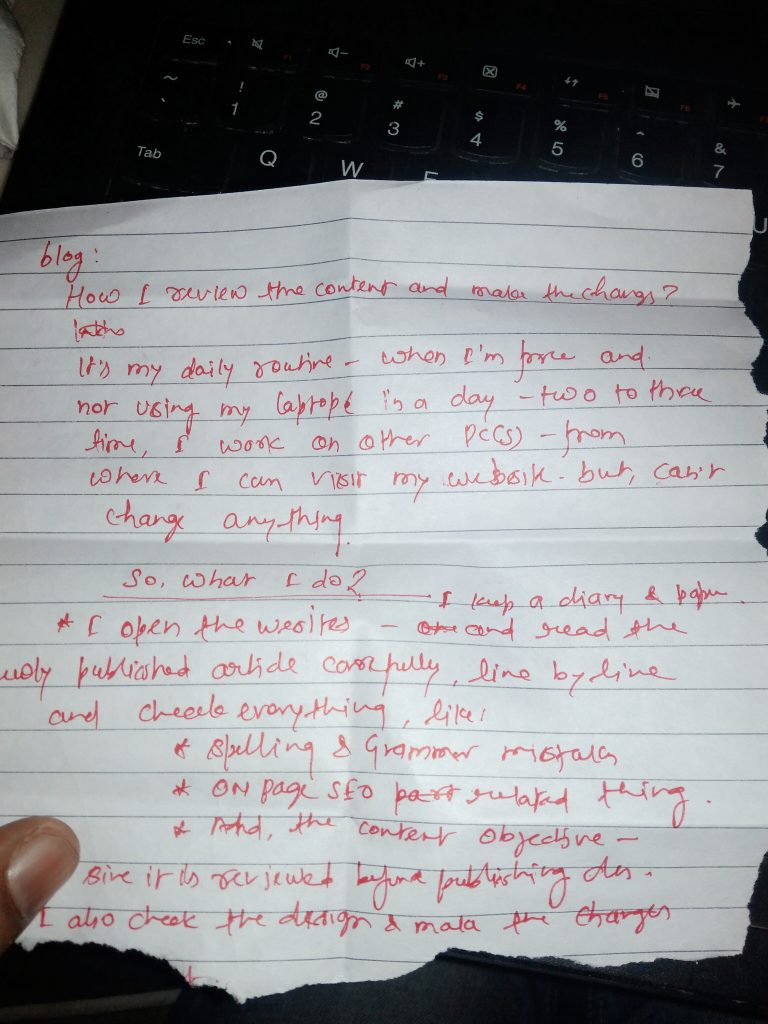 Esc F1 F2 F3 F4 F5 F6
~ ! @ # $ % ^ &
` 1 2 3 4 5 6 7
Tab Q W E U
blog:
How I review the content and make the changs?
It's my daily routine - when I'm free and
not using my laptope in a day - two to three
time, I work on other PC(s) - from
where I can visit my website. but, can't
change anything.
So, what I do?
I keep a diary & paper.
* I open the wesites - and read the
published article carefully, line by line
and check everything, like:
* Spelling & Grammar mistakes
* ON page SEO part related thing.
* And, the content objective -
it is reviewed before publishing
I also check the design & make the changes